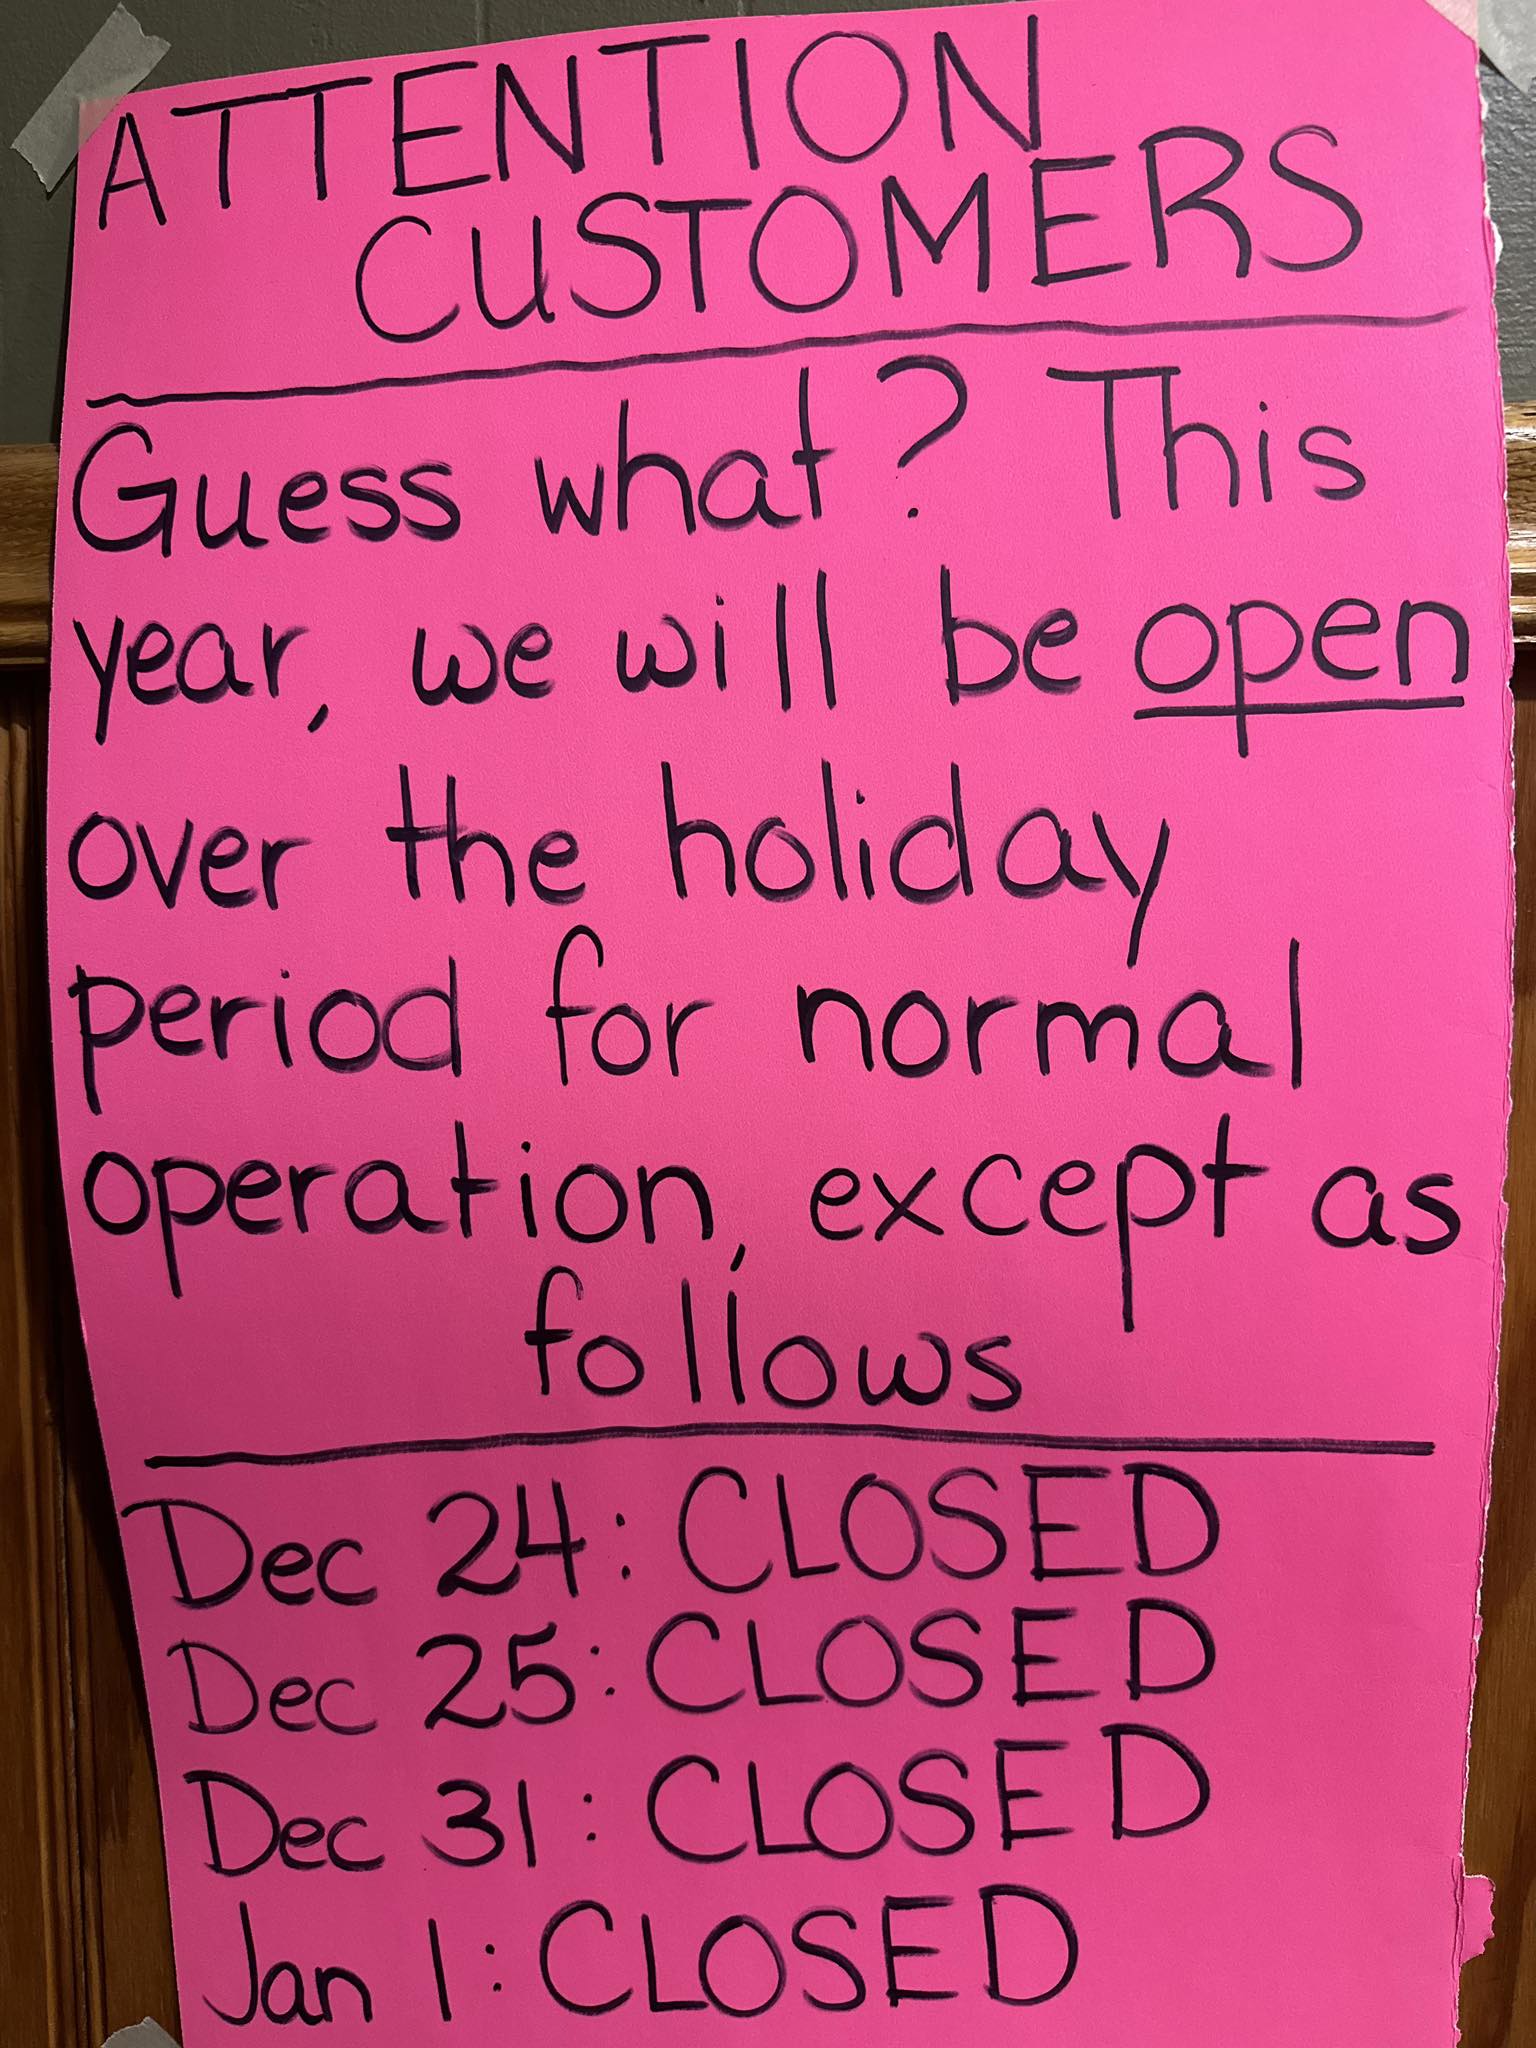 ATTENTION
CUSTOMERS
Guess what? This
year, we will be open
over the holiday
period for normal
operation, except as
follows
Dec 24: CLOSED
Dec 25: CLOSED
Dec 31: CLOSED
Jan 1: CLOSED